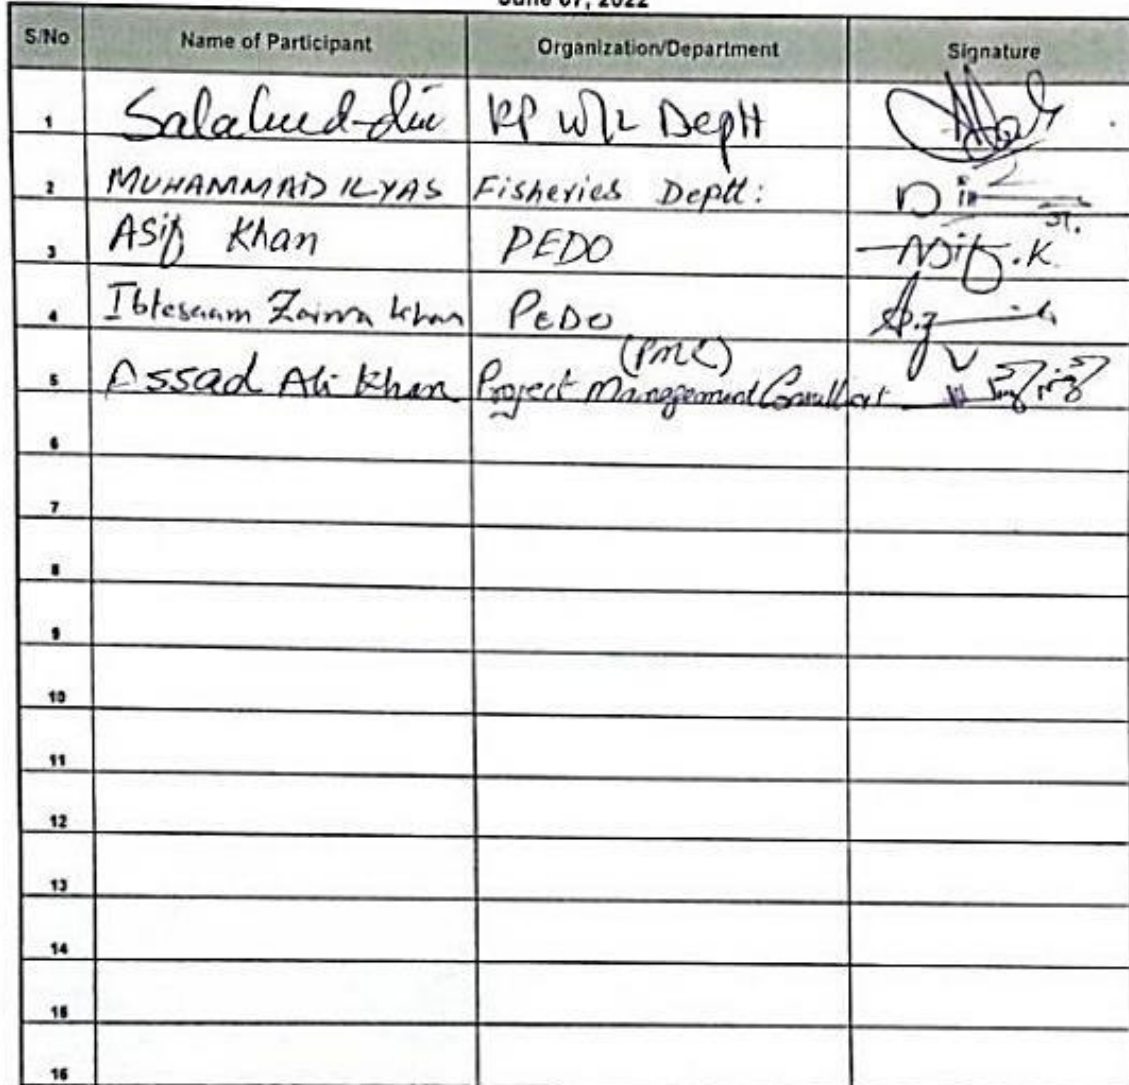 June 07, 2022
S/No Name of Participant Organization/Department Signature
1 Salahud-din KP W/L Deptt
2 MUHAMMAD ILYAS Fisheries Deptt:
3 Asif Khan PEDO Asif.K
4 Ibtesaam Khan PEDO
5 Assad Ali Khan Project Management Consultant (PMC)
6
7
8
9
10
11
12
13
14
15
16